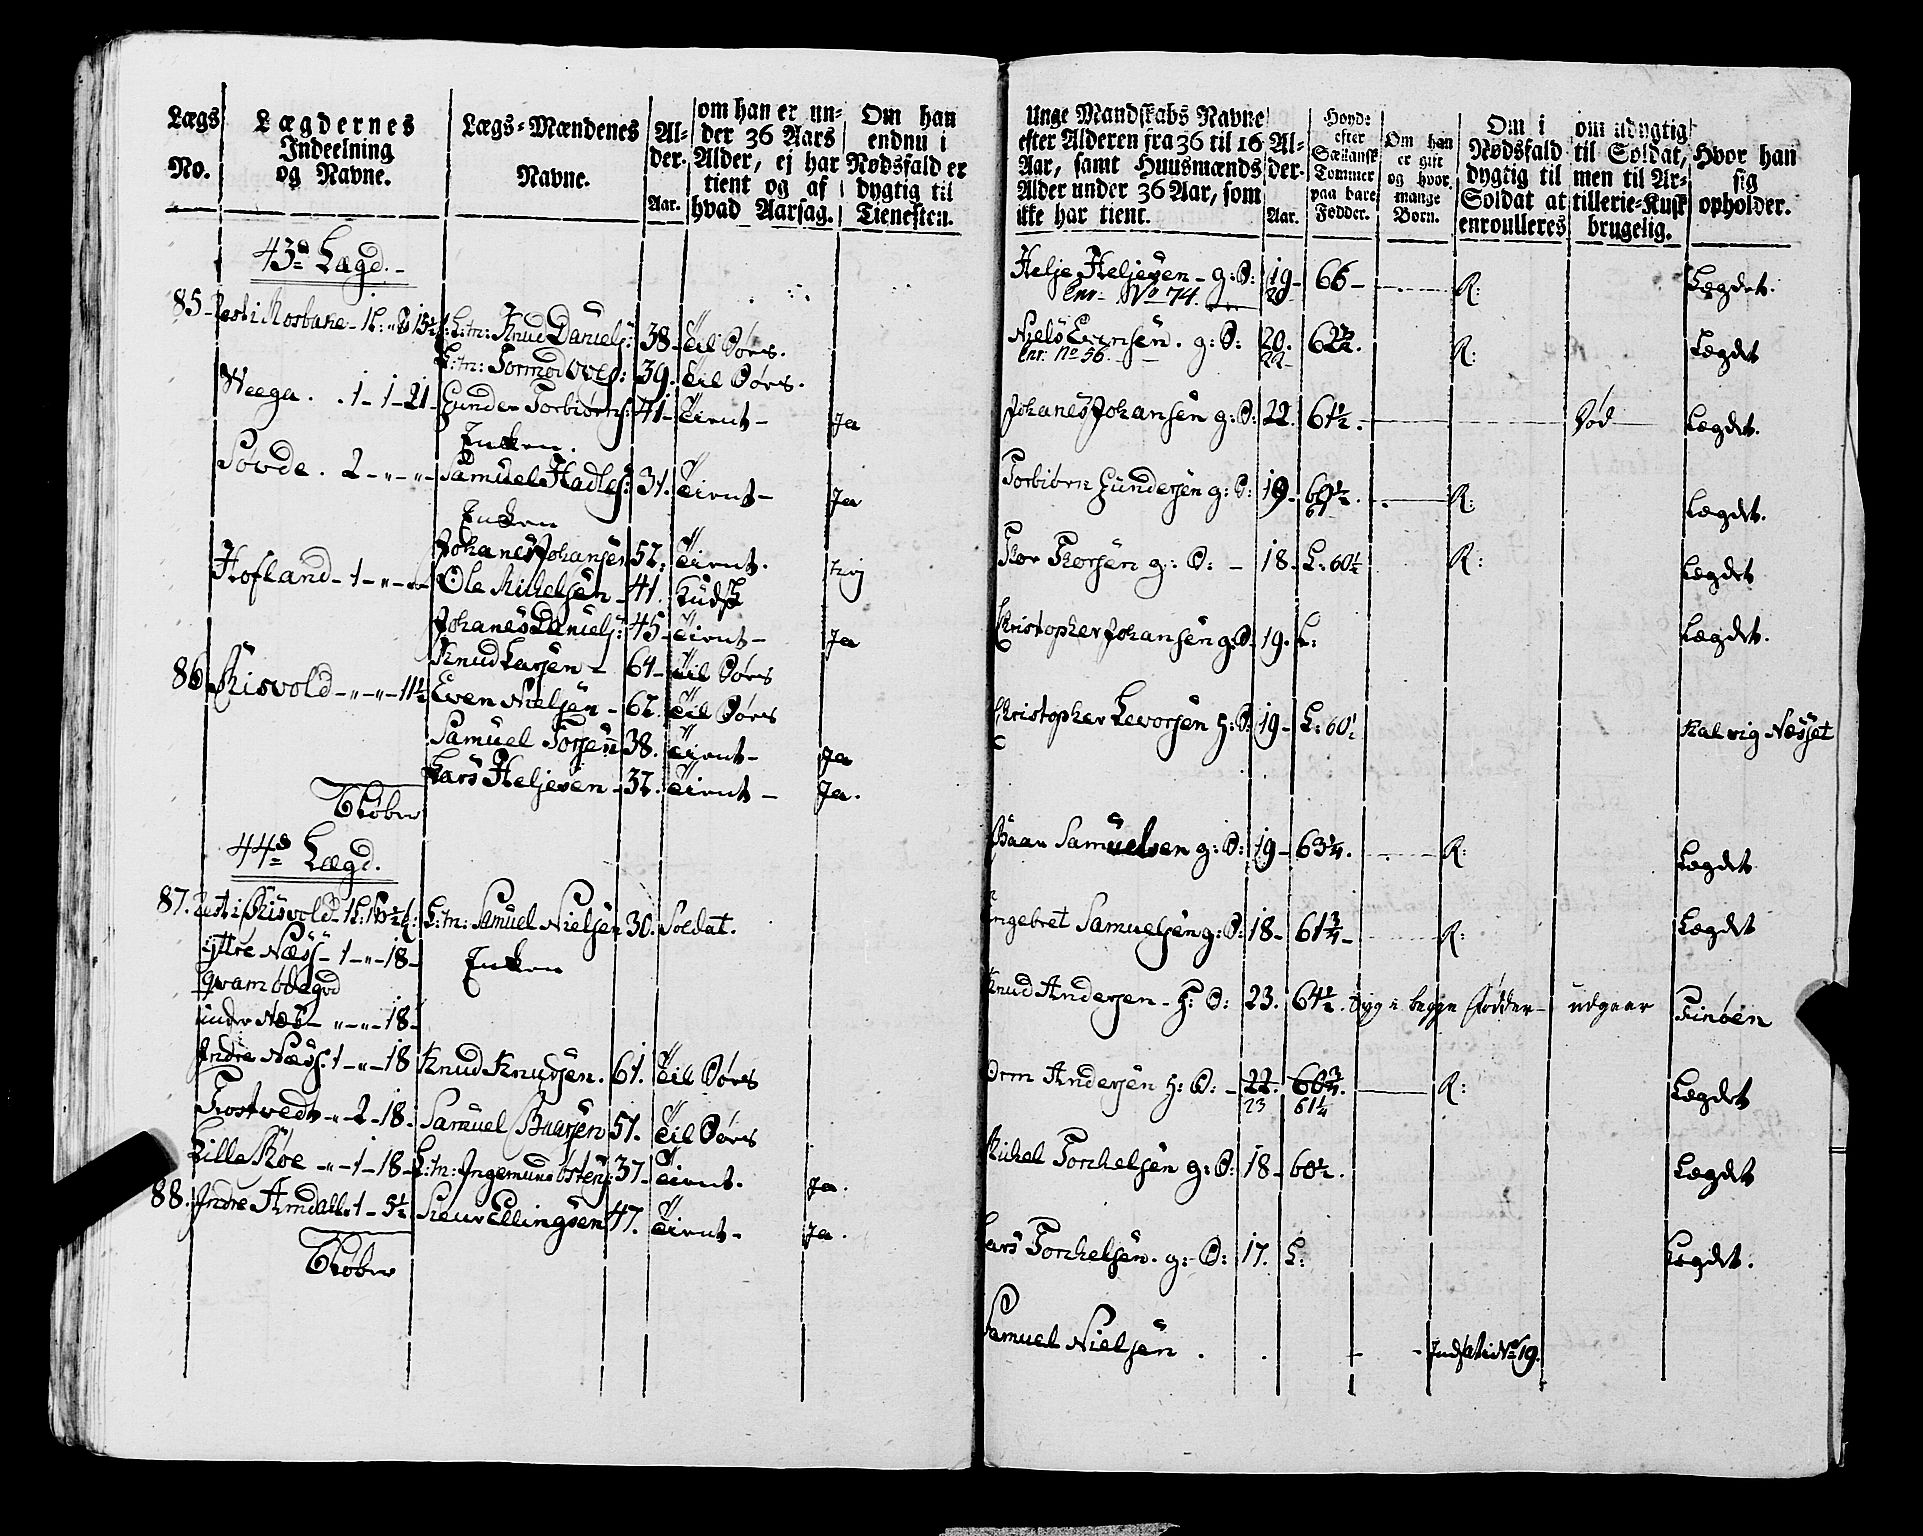 Lægs No.
Lægdernes Indeelning og Navne.
Lægs-Mændenes Navne.
Al-der. Aar.
om han er un-
der 36 Aars
Alder, ej har
tient og af
hvad Aarsag.
Om han
endnu i
Nødsfald er
dygtig til
Tienesten.
43de Lægd.
85 - Rest i 1 -
L:m: Knud Daniels: 38 - Til Børs.
L:m: Tormod Ols: 39. Til Børs.
Weega . . 1 - 1 - 21 - Gunder Torbiørns: 41 - Tient - Ja
Enken.
Søvde . 2 - " - " - Samuel 31. Tient - Ja
Enken
Johanes Johansen 52. Tient.
Hofland - 1 - " - " Ole Michelsen - 41. Kudsk
Johanes Daniels: 45 - Tient - Ja
Knud Larsen - 64 - Til Børs
86. Risvold - " - " - 11½ Even Nielsen - 62. Til Børs
Samuel Torsen 38. Tient - Ja
Lars Heljesen - 32. Tient - Ja.
44de Lægd.
87. Rest i Risvold L:m: Samuel Nielsen 30. Soldat.
Yttre Næss - 1 - " - 18 - Enken
under Næs - " - " - 18 -
Indre Næss: 1 - " - 18 Knud Knudsen. 61. Til Børs
Tostvedt - " - 2 - 18. Samuel Baarsen 57. Til Børs
Lille Bøe - " - 1 - 18 - L:m: Ingemund 37 - Tient. Ja.
88. Indre Amdall 1 - 5½ Ellingsen 47. Tient - Ja.
Unge Mandskabs Navne
efter Alderen fra 36 til 16
Aar, samt Huusmænds
Alder under 36 Aar, som
ikke har tient.
Al-der. Aar.
Høyd: efter Sællansk Tommer paa bare Fødder.
Om han er gift og hvor mange Børn.
Om i Nødsfald dygtig til Soldat at enroulleres
om udygtig til Soldat, men til Artillerie-Kusk brugelig.
Hvor han sig opholder.
Helje Heljesen - g: S: 19 - 66 - R: Lægdet.
Enr. No 74. 20
Niels Evensen. g: S: 20. 62½. R: Lægdet
Enr. No 56. 22
Johanes Johansen g: S: 22. 61½. Død Lægdet.
Torbiørn Gundersen g: S: 19 - 60½. R: Lægdet.
61
Tor Torsen g: S: - 18 - L: 60½ R: Lægdet
Christopher Johansen g: S: 19. L: Lægdet.
Christopher Levorsen H: S: 19 - L: 60½ Halvig Næsset
Baar Samuelsen g: S: 19 - 63¼. R: Lægdet
Engebret Samuelsen g: S: 18 - 61¾ - R: Lægdet
Knud Andersen - H: S: 23. 64½. Syg i begge Fødder - udgaar Finøen
Orm Andersen H: S: - 22. 60¾. R: Lægdet
23 61¼
Michel Torchelsen g: S: 18 - 60½. Lægdet
Lars Torchelsen. g: S: 17. L: Lægdet.
Samuel Nielsen . Indsat i No 19.